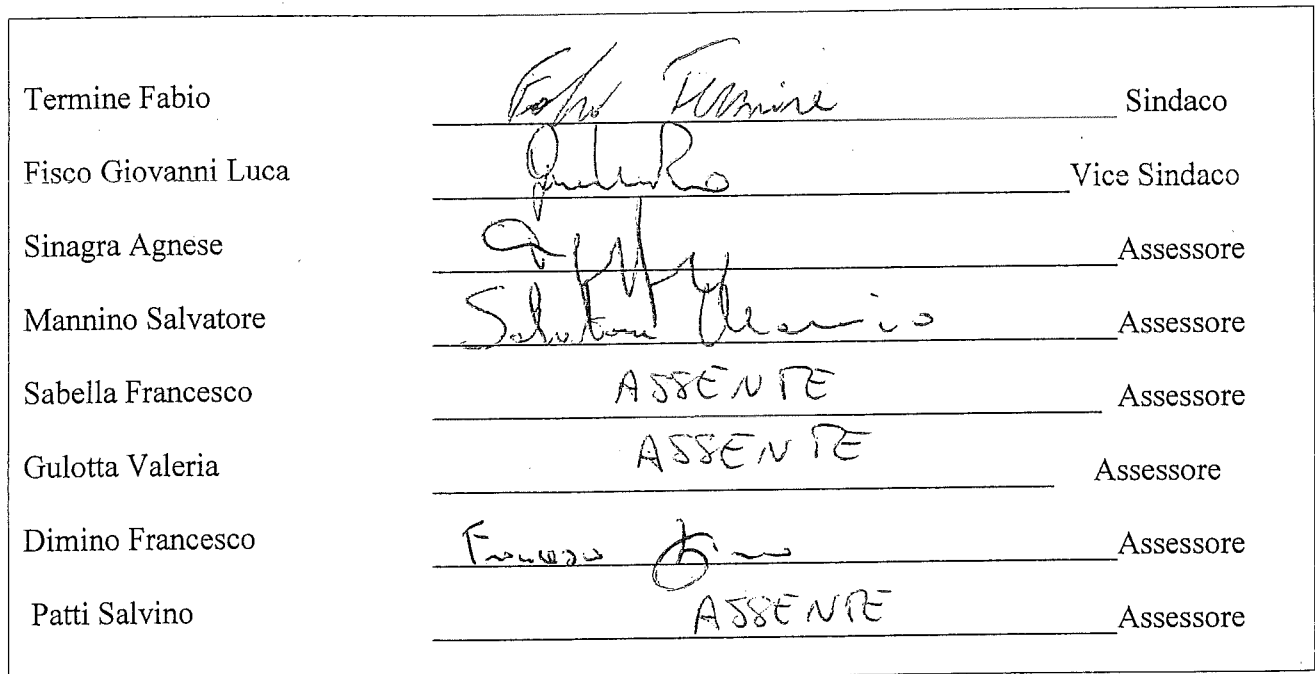 Termine Fabio Fabio Termine Sindaco
Fisco Giovanni Luca Vice Sindaco
Sinagra Agnese Assessore
Mannino Salvatore Salvatore Mannino Assessore
Sabella Francesco ASSENTE Assessore
Gulotta Valeria ASSENTE Assessore
Dimino Francesco Francesco Dimino Assessore
Patti Salvino ASSENTE Assessore